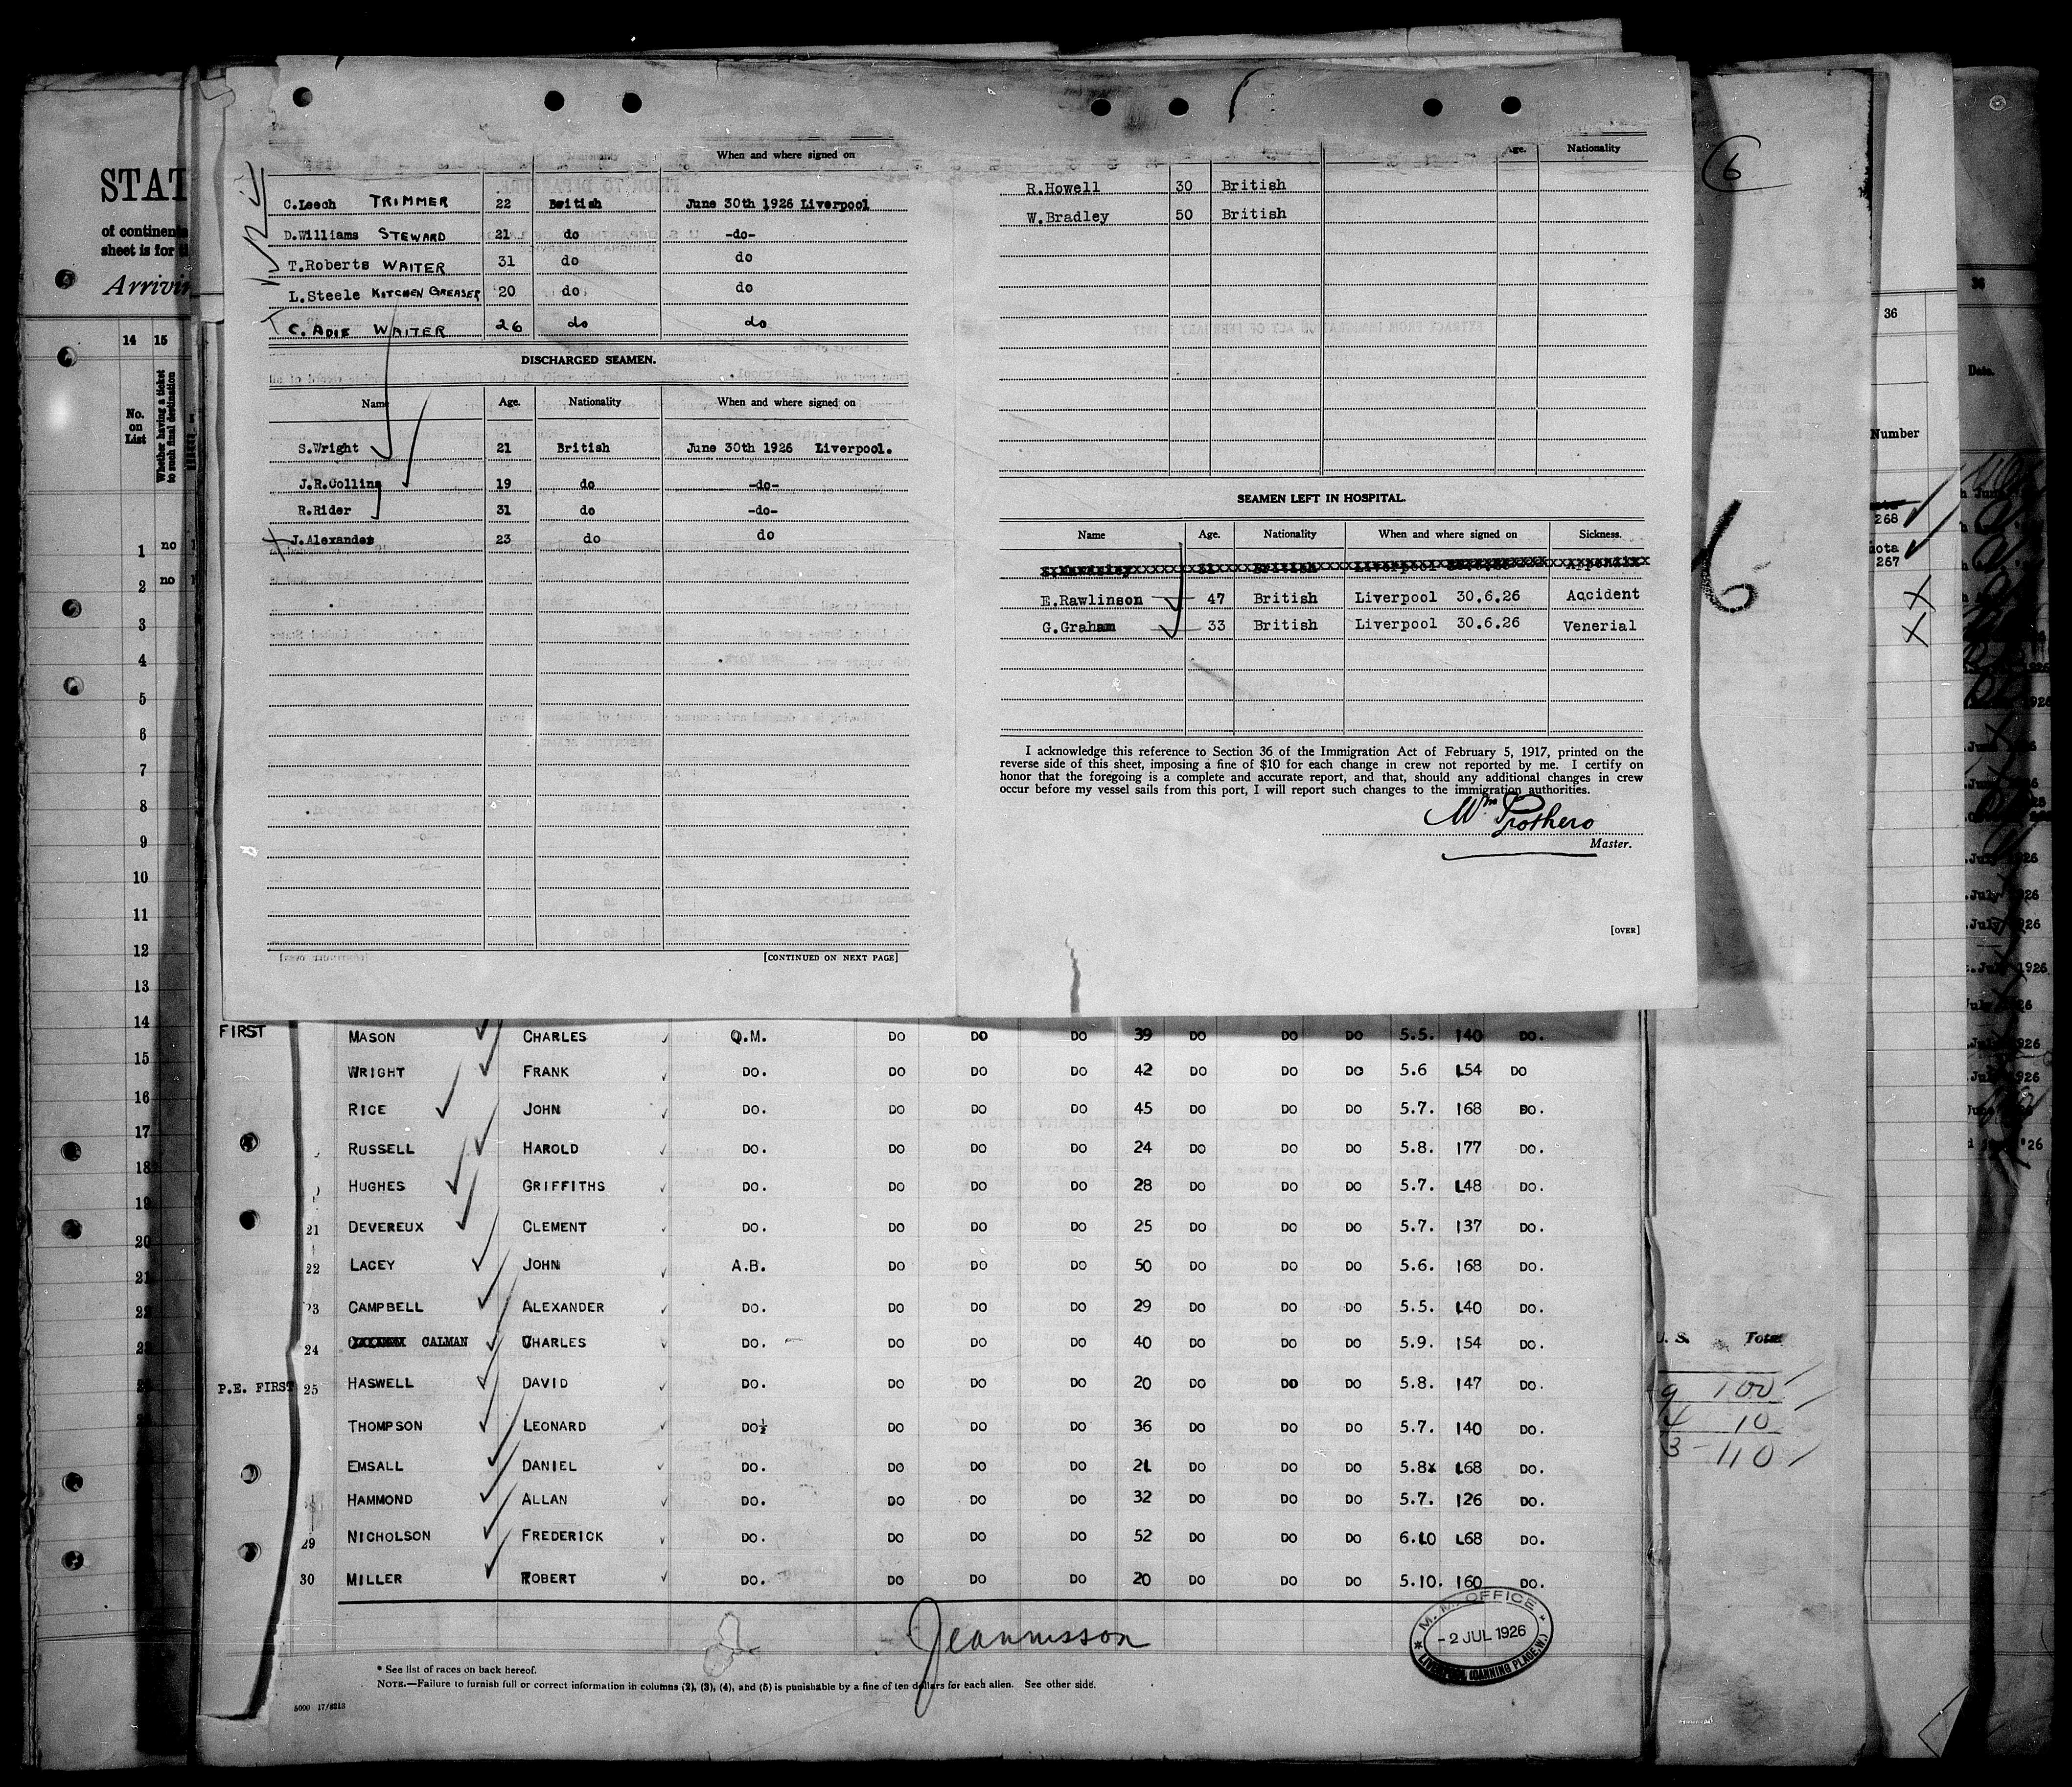 STAT
of continent
sheet is for
Arrivin
14 15
No. on List
Whether having a ticket to such final destination
1 no
2 no
3
4
5
6
7
8
9
10
11
12
13
14
15
16
17
18
19
20
21
When and where signed on
C.Leech TRIMMER 22 British June 30th 1926 Liverpool
D.Williams STEWARD 21 do -do-
T.Roberts WAITER 31 do do
L.Steele KITCHEN GREASER 20 do do
C. ADIE WAITER 26 do do
DISCHARGED SEAMEN.
Name Age. Nationality When and where signed on
S.Wright 21 British June 30th 1926 Liverpool.
J.R.Collins 19 do -do-
R.Rider 31 do -do-
J.Alexander 23 do do
[CONTINUED ON NEXT PAGE]
Age. Nationality
R.Howell 30 British
W.Bradley 50 British
SEAMEN LEFT IN HOSPITAL.
Name Age. Nationality When and where signed on Sickness.
E.Rawlinson 47 British Liverpool 30.6.26 Accident
G.Graham 33 British Liverpool 30.6.26 Venerial
I acknowledge this reference to Section 36 of the Immigration Act of February 5, 1917, printed on the
reverse side of this sheet, imposing a fine of $10 for each change in crew not reported by me. I certify on
honor that the foregoing is a complete and accurate report, and that, should any additional changes in crew
occur before my vessel sails from this port, I will report such changes to the immigration authorities.
Wm Prothero
Master.
[OVER]
6
6
36
Number
268
267
36
Date.
FIRST MASON CHARLES Q.M. DO DO DO 39 DO DO DO 5.5. 140 DO.
WRIGHT FRANK DO. DO DO DO 42 DO DO DO 5.6 154 DO
RICE JOHN DO. DO DO DO 45 DO DO DO 5.7. 168 DO.
RUSSELL HAROLD DO. DO DO DO 24 DO DO DO 5.8. 177 DO.
HUGHES GRIFFITHS DO. DO DO DO 28 DO DO DO 5.7. 148 DO.
21 DEVEREUX CLEMENT DO. DO DO DO 25 DO DO DO 5.7. 137 DO.
22 LACEY JOHN A.B. DO DO DO 50 DO DO DO 5.6. 168 DO.
23 CAMPBELL ALEXANDER DO. DO DO DO 29 DO DO DO 5.5. 140 DO.
24 CALMAN CHARLES DO. DO DO DO 40 DO DO DO 5.9. 154 DO.
P.E. FIRST 25 HASWELL DAVID DO. DO DO DO 20 DO DO DO 5.8. 147 DO.
THOMPSON LEONARD DO½ DO DO DO 36 DO DO DO 5.7. 140 DO.
EMSALL DANIEL DO. DO DO DO 21 DO DO DO 5.8x 168 DO.
HAMMOND ALLAN DO. DO DO DO 32 DO DO DO 5.7. 126 DO.
29 NICHOLSON FREDERICK DO. DO DO DO 52 DO DO DO 6.10 168 DO.
30 MILLER ROBERT DO. DO DO DO 20 DO DO DO 5.10. 160 DO.
U. S. Total
9 100
4 10
3 110
M. M. OFFICE
-2 JUL 1926
LIVERPOOL (CANNING PLACE W.)
* See list of races on back hereof.
NOTE.—Failure to furnish full or correct information in columns (2), (3), (4), and (5) is punishable by a fine of ten dollars for each alien. See other side.
5000 17/8213